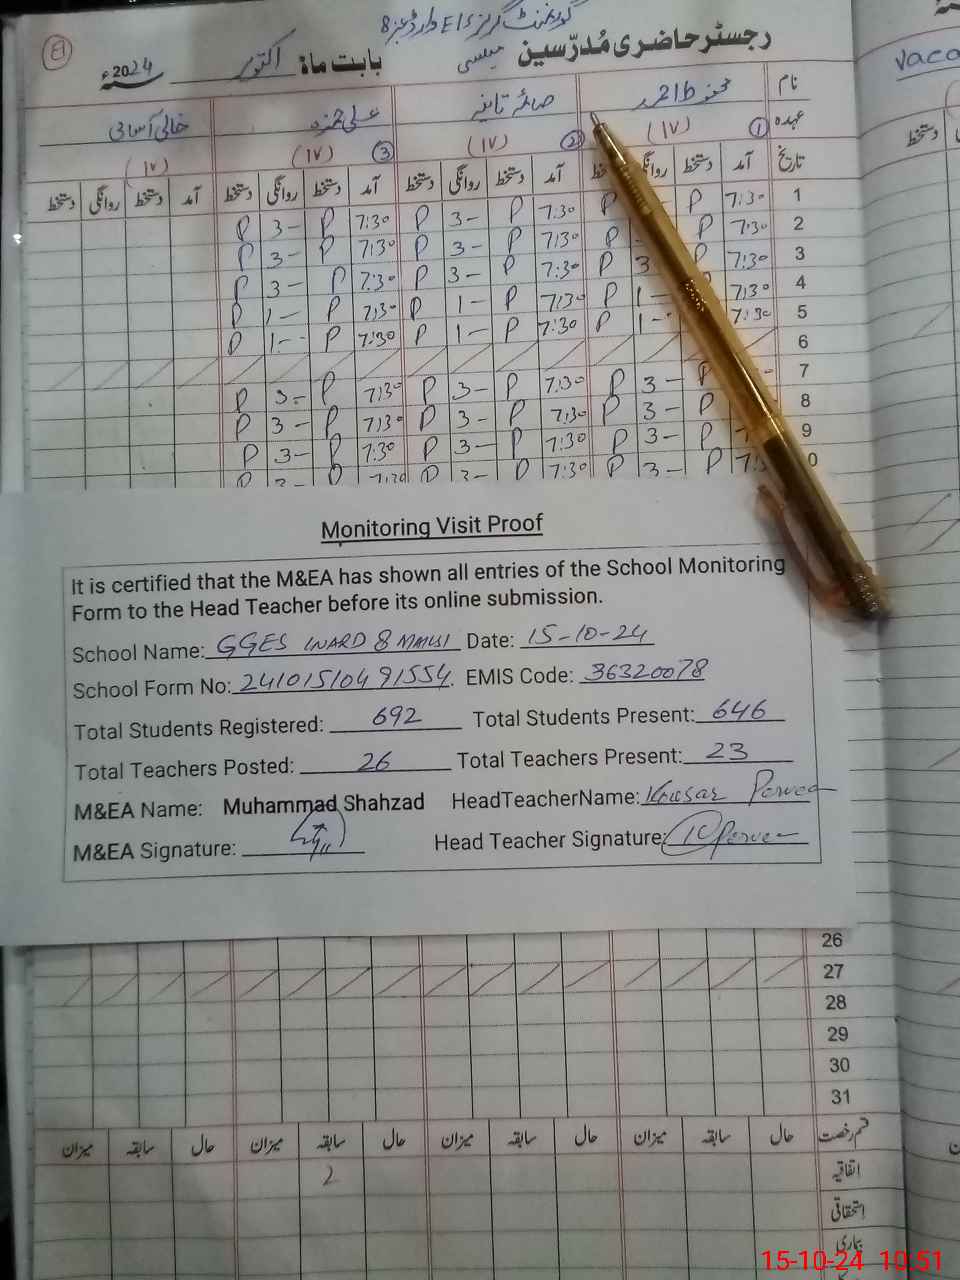 E1
گورنمنٹ گرلز E1 وارڈ نمبر 8
رجسٹر حاضری مُدرّسین میلسی بابت ماہ اکتوبر 2024ء
نام
صائمہ ثانیہ علی حمزہ خالی آسامی
عہدہ
(17) (17) (17) (17)
① ② ③
تاریخ آمد دستخط روانگی دستخط آمد دستخط روانگی دستخط آمد دستخط روانگی دستخط آمد دستخط روانگی دستخط
1 7:30 P P 7:30 P 3- P 7:30 P 3- P
2 7:30 P P 7:30 P 3- P 7:30 P 3- P
3 7:30 P 3 P 7:30 P 3- P 7:30 P 3- P
4 7:30 1- P 7:30 P 1- P 7:30 P 1- P
5 7:30 1- P 7:30 P 1- P 7:30 P 1- P
6
7 P 3- P 7:30 P 3- P 7:30 P 3- P
8 P 3- P 7:30 P 3- P 7:30 P 3- P
9 P 3- P 7:30 P 3- P 7:30 P 3- P
0 P 3- P 7:30 P 3- P 7:30 P 3- P
Monitoring Visit Proof
It is certified that the M&EA has shown all entries of the School Monitoring
Form to the Head Teacher before its online submission.
School Name: GGES WARD 8 MAILSI Date: 15-10-24
School Form No: 24101510491554. EMIS Code: 36320078
Total Students Registered: 692 Total Students Present: 646
Total Teachers Posted: 26 Total Teachers Present: 23
M&EA Name: Muhammad Shahzad HeadTeacherName: Kausar Perveen
M&EA Signature: Head Teacher Signature: K Perveen
26
27
28
29
30
31
قسم رخصت حال سابقہ میزان حال سابقہ میزان حال سابقہ میزان حال سابقہ میزان
اتفاقیہ 2
استحقاقی
بیماری
Vaca
دستخط
15-10-24 10:51